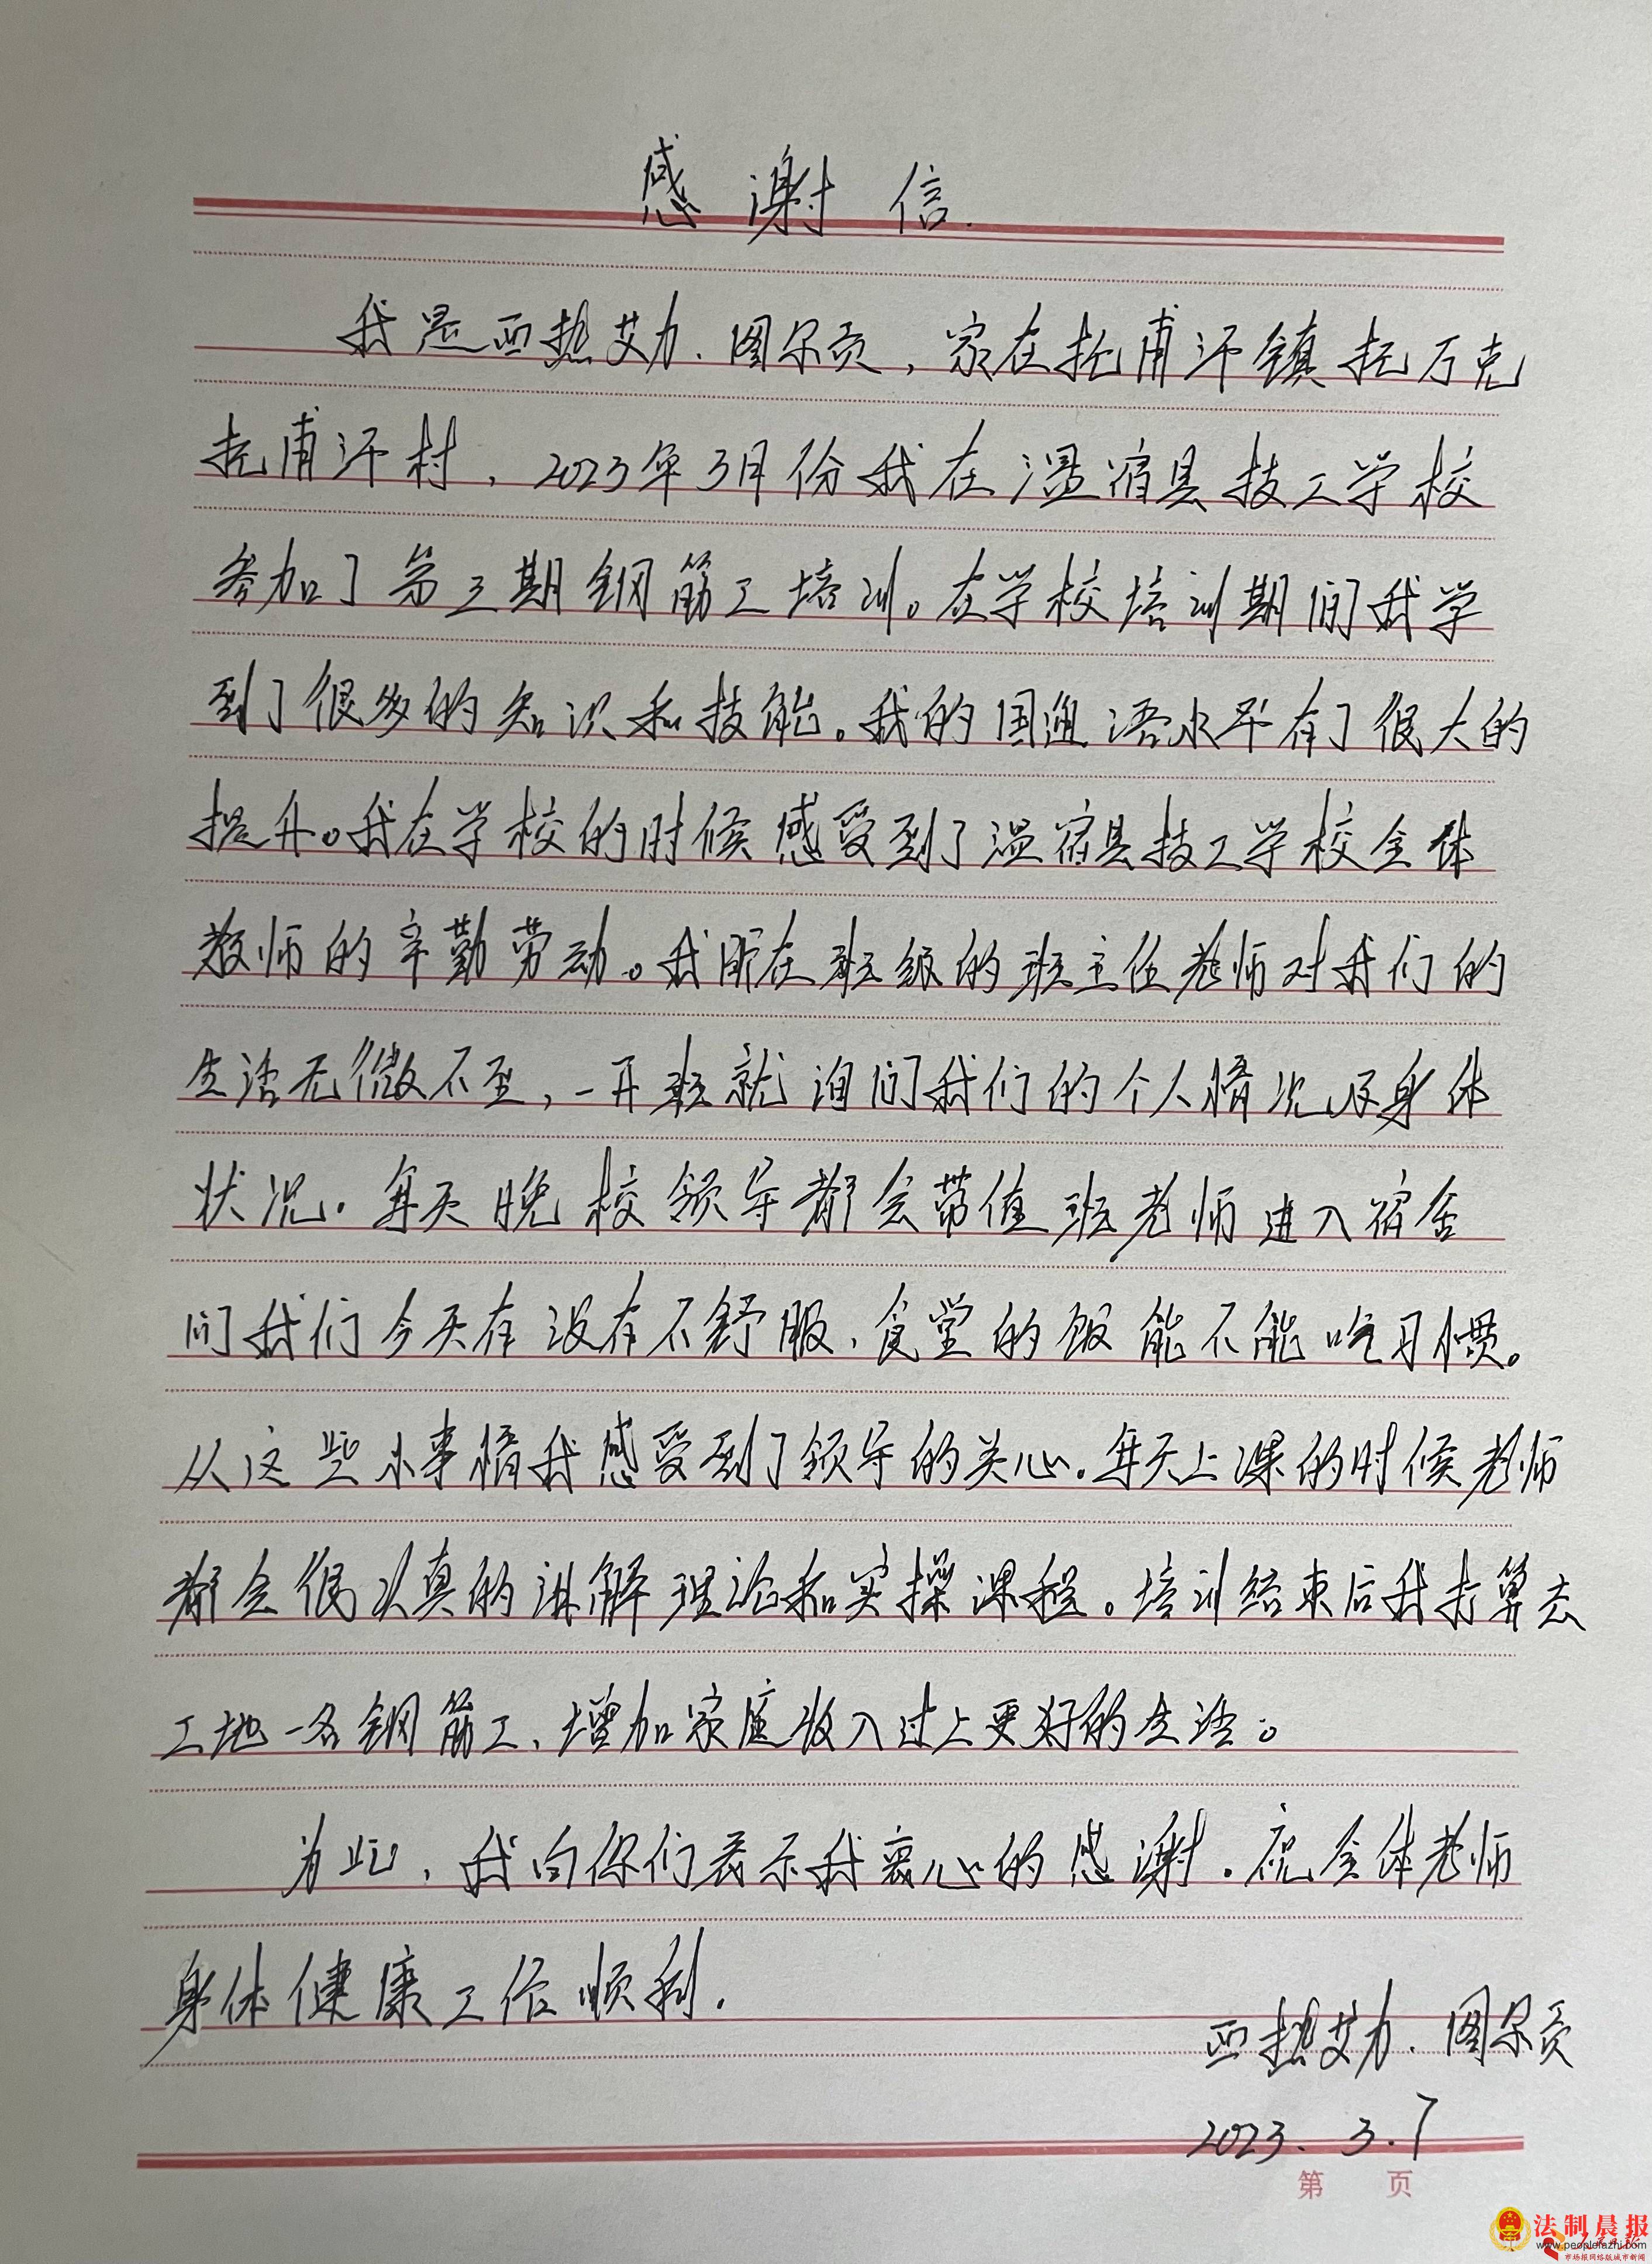 感谢信.
我是西热艾力.图尔贡,家在托甫汗镇托万克
托甫汗村,2023年3月份我在温宿县技工学校
参加了第三期钢筋工培训。在学校培训期间我学
到了很多的知识和技能。我的国通语水平有了很大的
提升。我在学校的时候感受到了温宿县技工学校全体
教师的辛勤劳动。我所在班级的班主任老师对我们的
生活无微不至,一开班就询问我们的个人情况及身体
状况.每天晚校领导都会带值班老师进入宿舍
问我们今天有没有不舒服、食堂的饭能不能吃习惯。
从这些小事情我感受到了领导的关心.每天上课的时候老师
都会很认真的讲解理论和实操课程。培训结束后我打算去
工地一名钢筋工、增加家庭收入过上更好的生活。
为此,我向你们表示我衷心的感谢.祝全体老师
身体健康工作顺利.
西热艾力.图尔贡
2023.3.7
第 页
法制晨报
www.peoplefazhi.com
市场报网络版城市新闻